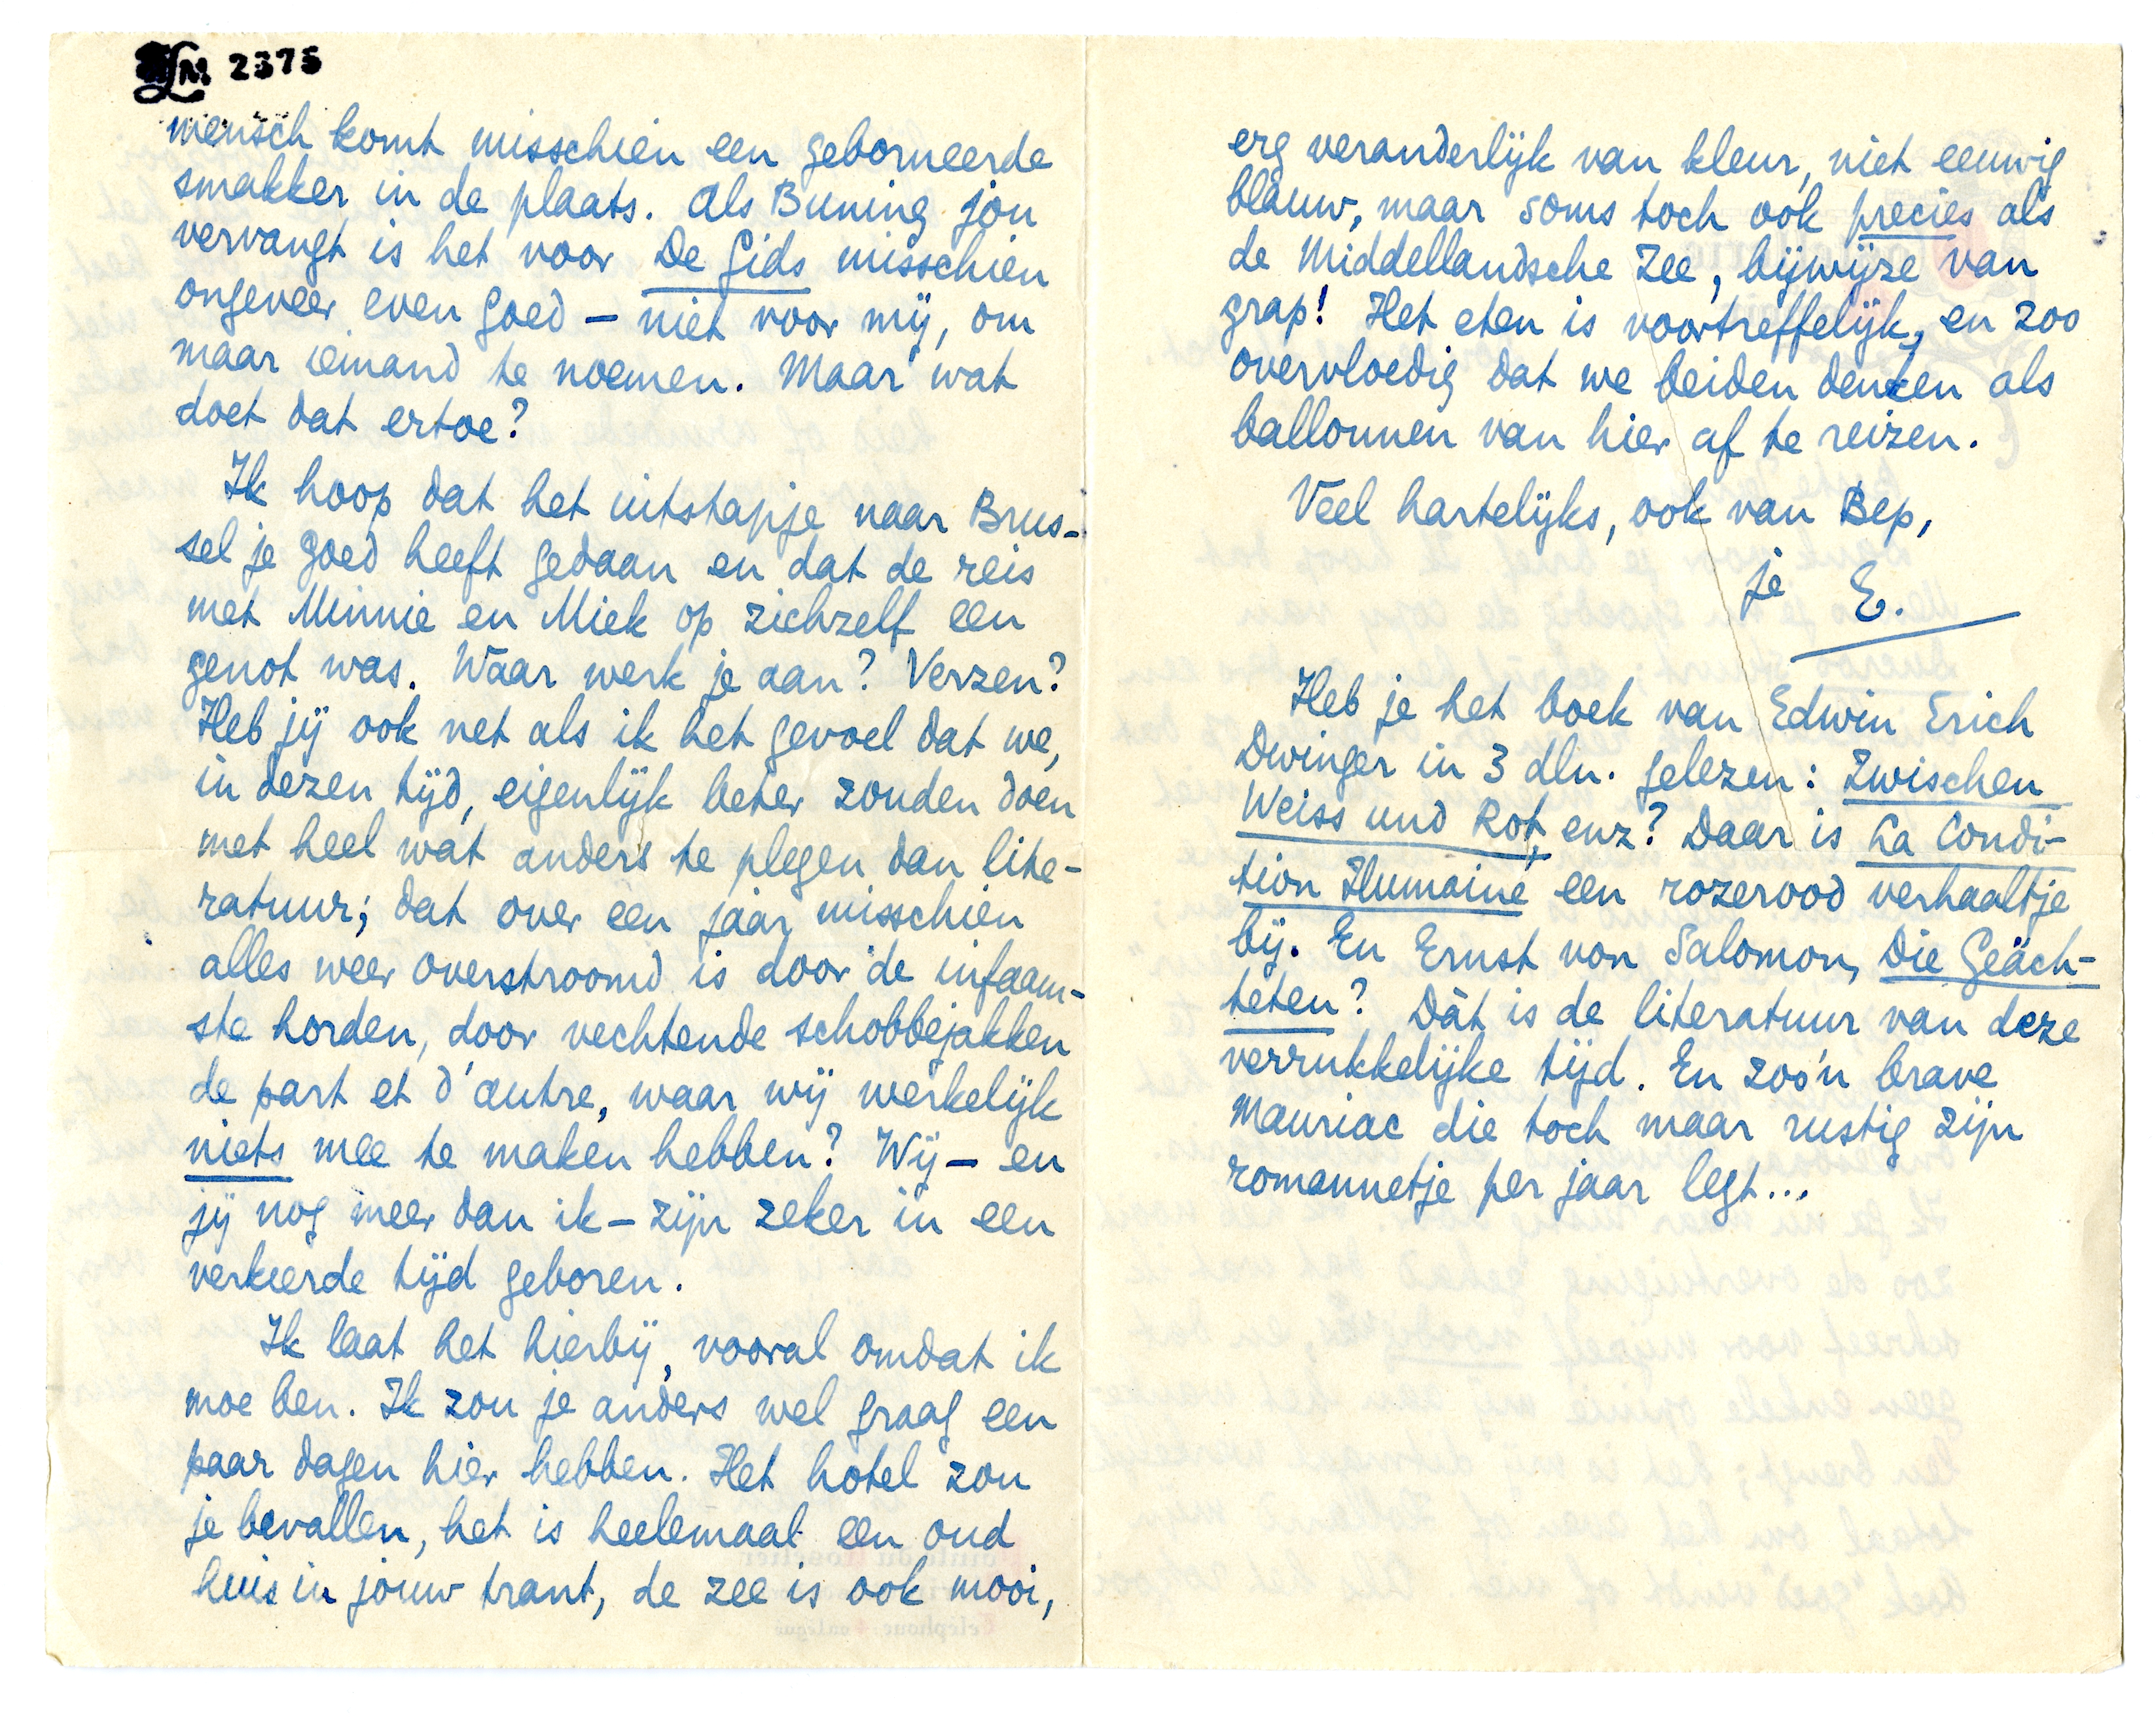 LM 2375
mensch komt misschien een geborneerde
smakker in de plaats. Als Buning jou
vervangt is het voor De Gids misschien
ongeveer even goed – niet voor mij, om
maar iemand te noemen. Maar wat
doet dat ertoe?
Ik hoop dat het uitstapje naar Brus-
sel je goed heeft gedaan en dat de reis
met Minnie en Miek op zichzelf een
genot was. Waar werk je aan? Verzen?
Heb jij ook net als ik het gevoel dat we,
in dezen tijd, eigenlijk beter zouden doen
met heel wat anders te plegen dan lite-
ratuur; dat over een jaar misschien
alles weer overstroomd is door de infaam-
ste horden, door vechtende schobbejakken
de part et d'autre, waar wij werkelijk
niets mee te maken hebben? Wij – en
jij nog meer dan ik – zijn zeker in een
verkeerde tijd geboren.
Ik laat het hierbij, vooral omdat ik
moe ben. Ik zou je anders wel graag een
paar dagen hier hebben. Het hotel zou
je bevallen, het is heelemaal een oud
huis in jouw trant, de zee is ook mooi,
erg veranderlijk van kleur, niet eeuwig
blauw, maar soms toch ook precies als
de Middellandsche Zee, bijwijze van
grap! Het eten is voortreffelijk, en zoo
overvloedig dat we beiden denken als
ballonnen van hier af te reizen.
Veel hartelijks, ook van Bep,
je E.
Heb je het boek van Edwin Erich
Dwinger in 3 dln. gelezen: Zwischen
Weiss und Rot, enz? Daar is La Condi-
tion Humaine een rozerood verhaaltje
bij. En Ernst von Salomon, Die Geäch-
teten? Dàt is de literatuur van deze
verrukkelijke tijd. En zoo'n brave
Mauriac die toch maar rustig zijn
romannetje per jaar legt...